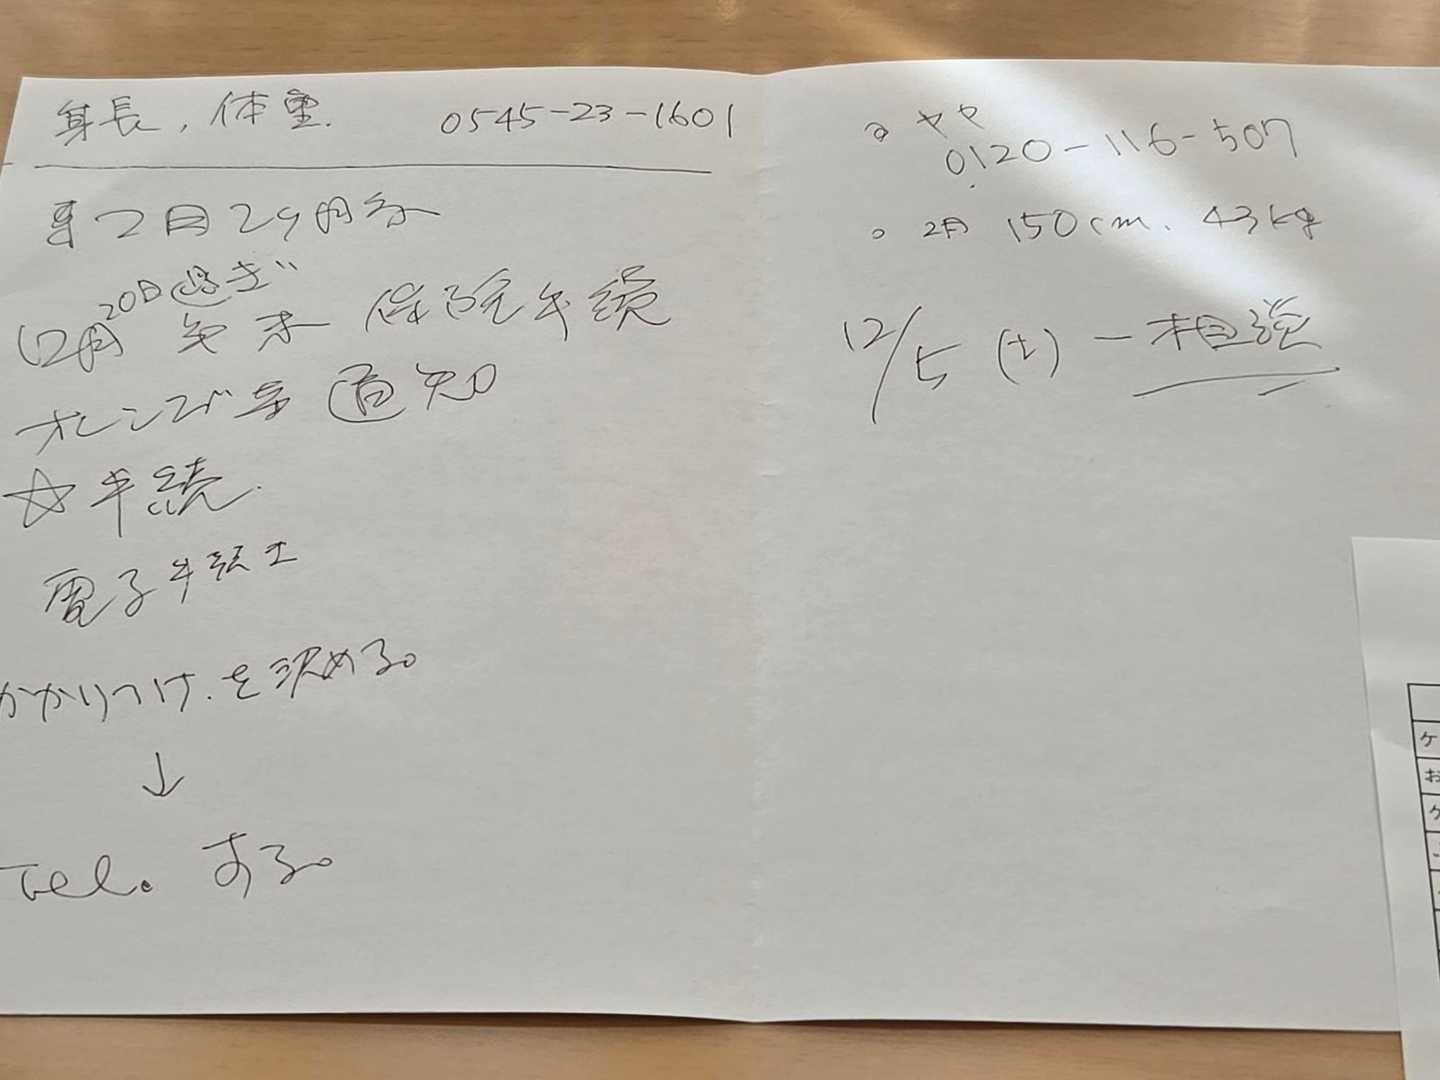 身長, 体重. 0545-23-1601
2月29日
20日過ぎ
12月 年末 保険手続
オレンジ 通知
☆手続.
電子手続
かかりつけ.を決める。
↓
Tel. する。
ヤヤ
0120-116-507
○ 2月 150cm. 43kg
12/5 (土) ー相談
ケ
お
ケ